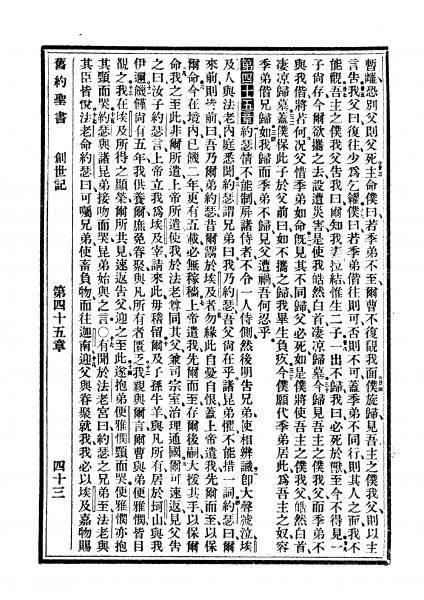 暫離恐別父則父死主命僕曰若季弟不至爾曹不復覿我面僕旋歸見吾主之僕我父則以主
言告我父曰復往少爲乞糴僕曰若季弟偕往則可否則不可蓋季弟不同行則其人之面我不
能覿吾主之僕我父告我曰爾知我妻拉結惟生二子一出不歸我曰必死於獸至今不得見一
子尚存今爾欲攜之去設遭災害是使我皓然白首凄凉歸墓今歸見吾主之僕我父而季弟不
與我偕將若何況父惜季弟如命旣見其不同歸父必死如是僕將使吾主之僕我父皓然白首
凄凉歸墓蓋僕保此子於父前曰如不攜之歸我畢生負疚今僕願代季弟居此爲吾主之奴容
季弟偕兄歸如我歸而季弟不歸見父遭禍吾何忍乎
第四十五章約瑟情不能制屏諸侍者不令一人侍側然後明告兄弟使相辨識卽大聲號泣埃
及人與法老內庭悉聞約瑟謂兄弟曰我乃約瑟吾父尚在乎諸昆弟懼不能措一詞約瑟曰爾
來前則皆前曰吾乃爾弟約瑟昔爾鬻於埃及者勿緣此自憂自恨蓋上帝遣我先爾而至以保
爾命今在境內已饑二年更有五載必無稼穡上帝遣我先爾而至存爾後嗣大援其手以保爾
命我之至此非爾所遣上帝所遣使我於法老尊同其父兼司宗室治理通國爾可速返見父告
之曰汝子約瑟言上帝立我爲埃及宰請來此毋稽留爾及子孫牛羊與凡所有居於坷山與我
伊邇饑饉尚有五年我供養爾庶免爾眷與凡所有者匱乏我親與爾言爾曹與弟便雅憫皆目
覩之我在埃及所得之顯榮爾所共見速返告父迎之至此遂抱弟便雅憫頸而哭便雅憫亦抱
其頸而哭約瑟與諸昆弟接吻而哭昆弟始與之言○有聞於法老宮曰約瑟之兄弟至法老與
其臣皆悅法老命約瑟曰可囑兄弟使畜負物而往迦南迎父與眷聚就我我必以埃及嘉物賜
舊約聖書 創世記 第四十五章 四十三